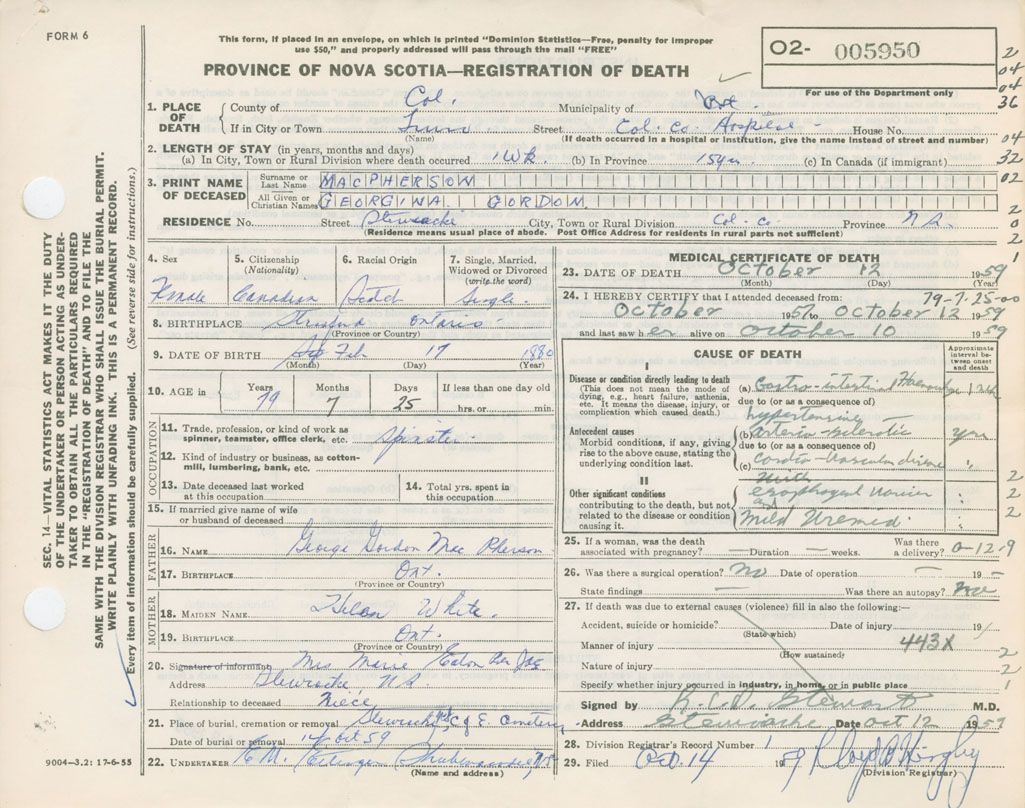 FORM 6
This form, if placed in an envelope, on which is printed "Dominion Statistics—Free, penalty for improper
use $50," and properly addressed will pass through the mail "FREE"
PROVINCE OF NOVA SCOTIA—REGISTRATION OF DEATH
O2- 005950
For use of the Department only
2
04
04
36
04
32
02
2
0
2
1
SEC. 14—VITAL STATISTICS ACT MAKES IT THE DUTY
OF THE UNDERTAKER OR PERSON ACTING AS UNDER-
TAKER TO OBTAIN ALL THE PARTICULARS REQUIRED
IN THE "REGISTRATION OF DEATH" AND TO FILE THE
SAME WITH THE DIVISION REGISTRAR WHO SHALL ISSUE THE BURIAL PERMIT.
WRITE PLAINLY WITH UNFADING INK. THIS IS A PERMANENT RECORD.
Every item of information should be carefully supplied. (See reverse side for instructions.)
1. PLACE OF DEATH
County of Col. Municipality of
If in City or Town Street Col. Co. Hospital - House No.
(Name) (If death occurred in a hospital or institution, give the name instead of street and number)
2. LENGTH OF STAY (in years, months and days)
(a) In City, Town or Rural Division where death occurred 1 Wk. (b) In Province 15 yrs (c) In Canada (if immigrant)
3. PRINT NAME OF DECEASED
Surname or Last Name MACPHERSON
All Given or Christian Names GEORGINA GORDON
RESIDENCE No. Street Stewiacke City, Town or Rural Division Col. Co. Province N.S.
(Residence means usual place of abode. Post Office Address for residents in rural parts not sufficient)
4. Sex
Female
5. Citizenship
(Nationality)
Canadian
6. Racial Origin
Scotch
7. Single, Married,
Widowed or Divorced
(write the word)
Single.
8. BIRTHPLACE Ontario.
(Province or Country)
9. DATE OF BIRTH Feb 17 1880
(Month) (Day) (Year)
10. AGE in
Years 79
Months 7
Days 25
If less than one day old
hrs. or min.
OCCUPATION
11. Trade, profession, or kind of work as
spinner, teamster, office clerk, etc. Spinster.
12. Kind of industry or business, as cotton-
mill, lumbering, bank, etc.
13. Date deceased last worked
at this occupation
14. Total yrs. spent in
this occupation
15. If married give name of wife
or husband of deceased
FATHER
16. NAME George Gordon MacPherson
17. BIRTHPLACE Ont.
(Province or Country)
MOTHER
18. MAIDEN NAME Helen White.
19. BIRTHPLACE Ont.
(Province or Country)
20. Signature of informant Mrs Eaton
Address Stewiacke N.S.
Relationship to deceased Niece.
21. Place of burial, cremation or removal Stewiacke C of E. Cemetery
Date of burial or removal 14 Oct 59
22. UNDERTAKER
(Name and address)
9004—3.2: 17-6-55
MEDICAL CERTIFICATE OF DEATH
23. DATE OF DEATH October 12 1959
(Month) (Day) (Year)
24. I HEREBY CERTIFY that I attended deceased from: 79-7-25-00
October 1957 to October 12 1959
and last saw her alive on October 10 1959
CAUSE OF DEATH
Approximate
interval be-
tween onset
and death
I
Disease or condition directly leading to death
(This does not mean the mode of
dying, e.g., heart failure, asthenia,
etc. It means the disease, injury, or
complication which caused death.)
(a) Gastro-intestinal
due to (or as a consequence of)
hypertensive
Antecedent causes
Morbid conditions, if any, giving
rise to the above cause, stating the
underlying condition last.
(b) arterio-sclerotic yrs
due to (or as a consequence of)
(c) Cardio-vascular disease " 2
II
with
Other significant conditions
contributing to the death, but not
related to the disease or condition
causing it.
esophageal " 2
and
Mild Uremia. " 2
25. If a woman, was the death
associated with pregnancy? — Duration — weeks.
Was there
a delivery? 0-12-9
26. Was there a surgical operation? No Date of operation — 19 —
State findings — Was there an autopsy? No
27. If death was due to external causes (violence) fill in also the following:—
Accident, suicide or homicide? Date of injury 19
(State which)
Manner of injury 443X 2
(How sustained)
Nature of injury 2
Specify whether injury occurred in industry, in home, or in public place 1
Signed by R.C.D. Stewart M.D.
Address Stewiacke Date Oct 12 1959
28. Division Registrar's Record Number 1
29. Filed Oct. 14 19 59
(Division Registrar)